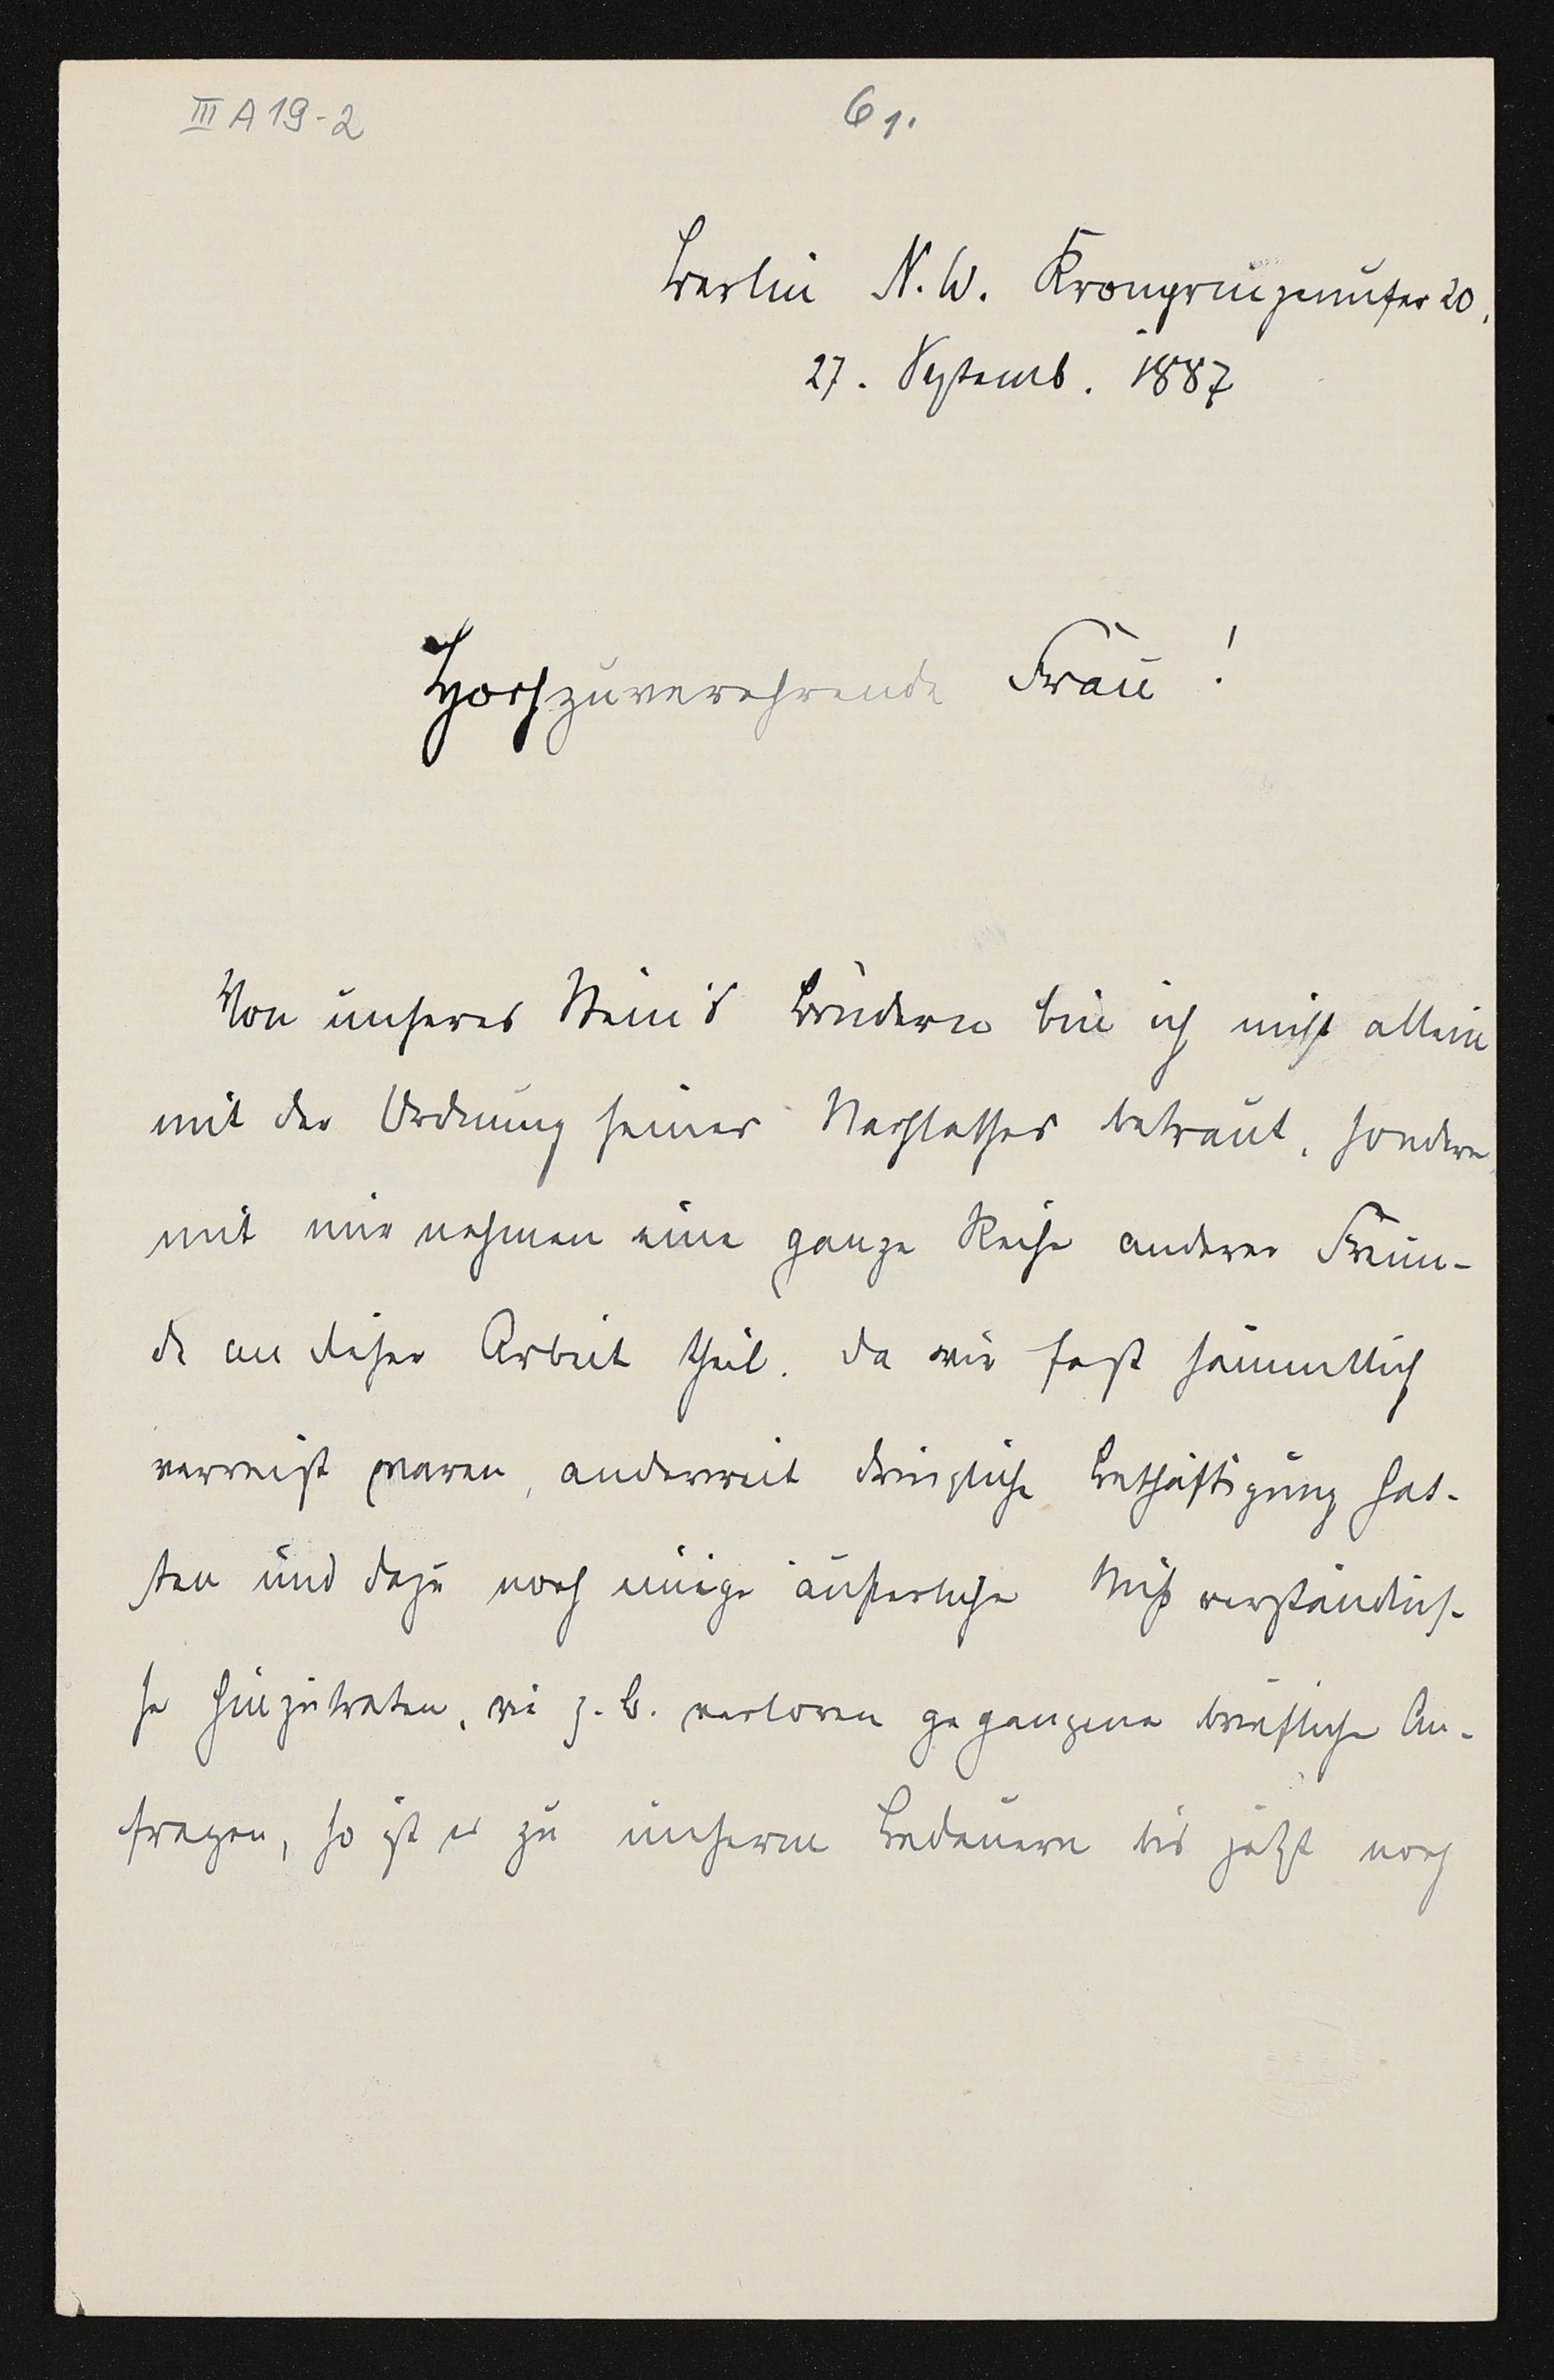 III A 19-2
61.
Berlin N.W. Kronprinzenufer 20,
27. Septemb. 1887
Hochzuverehrende Frau!
Von unseres Stein's Brüdern bin ich nicht allein
mit der Ordnung seines Nachlasses betraut, sondern
mit mir nehmen eine ganze Reihe anderer Freun-
de an dieser Arbeit theil. Da wir fast sämmtlich
verreist waren, anderweit dringliche Beschäftigung hat-
ten und dazu noch einige äußerliche Mißverständnis-
se hinzutraten, wie z. B. verloren gegangene briefliche An-
fragen, so ist es zu unserm Bedauern bis jetzt noch